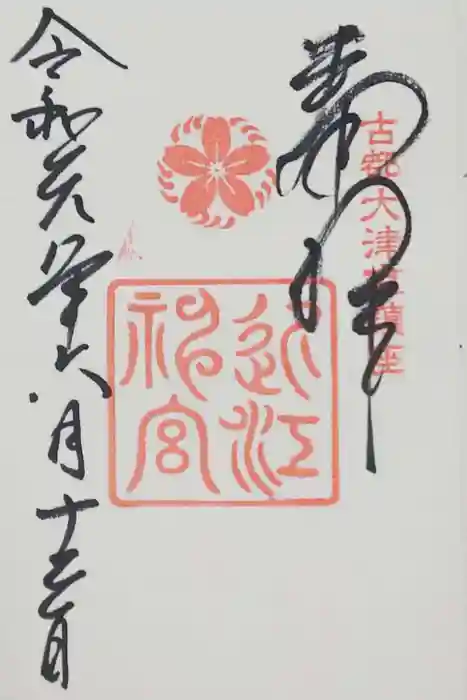 古都大津鎮座
奉拝
近江
神宮
令和元年六月十三日